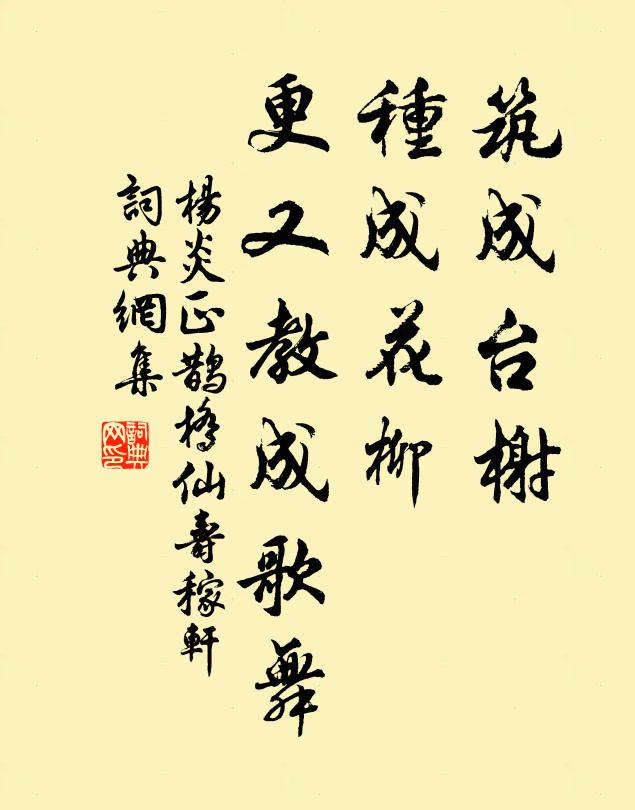 筑成台榭
種成花柳
更又教成歌舞
楊炎正鵲橋仙壽稼軒
詞典網集
詞典網印